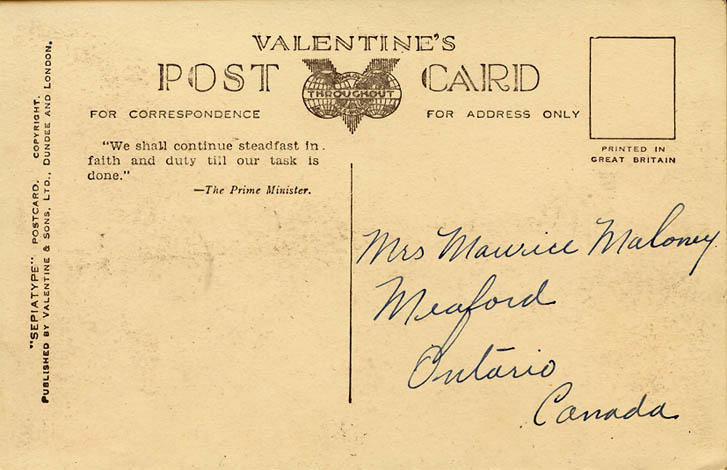 VALENTINE'S
POST CARD
THROUGHOUT
FOR CORRESPONDENCE
FOR ADDRESS ONLY
PRINTED IN
GREAT BRITAIN
"We shall continue steadfast in
faith and duty till our task is
done."
—The Prime Minister.
"SEPIATYPE" POSTCARD. COPYRIGHT.
PUBLISHED BY VALENTINE & SONS, LTD., DUNDEE AND LONDON.
Mrs Maurice Maloney
Meaford
Ontario
Canada